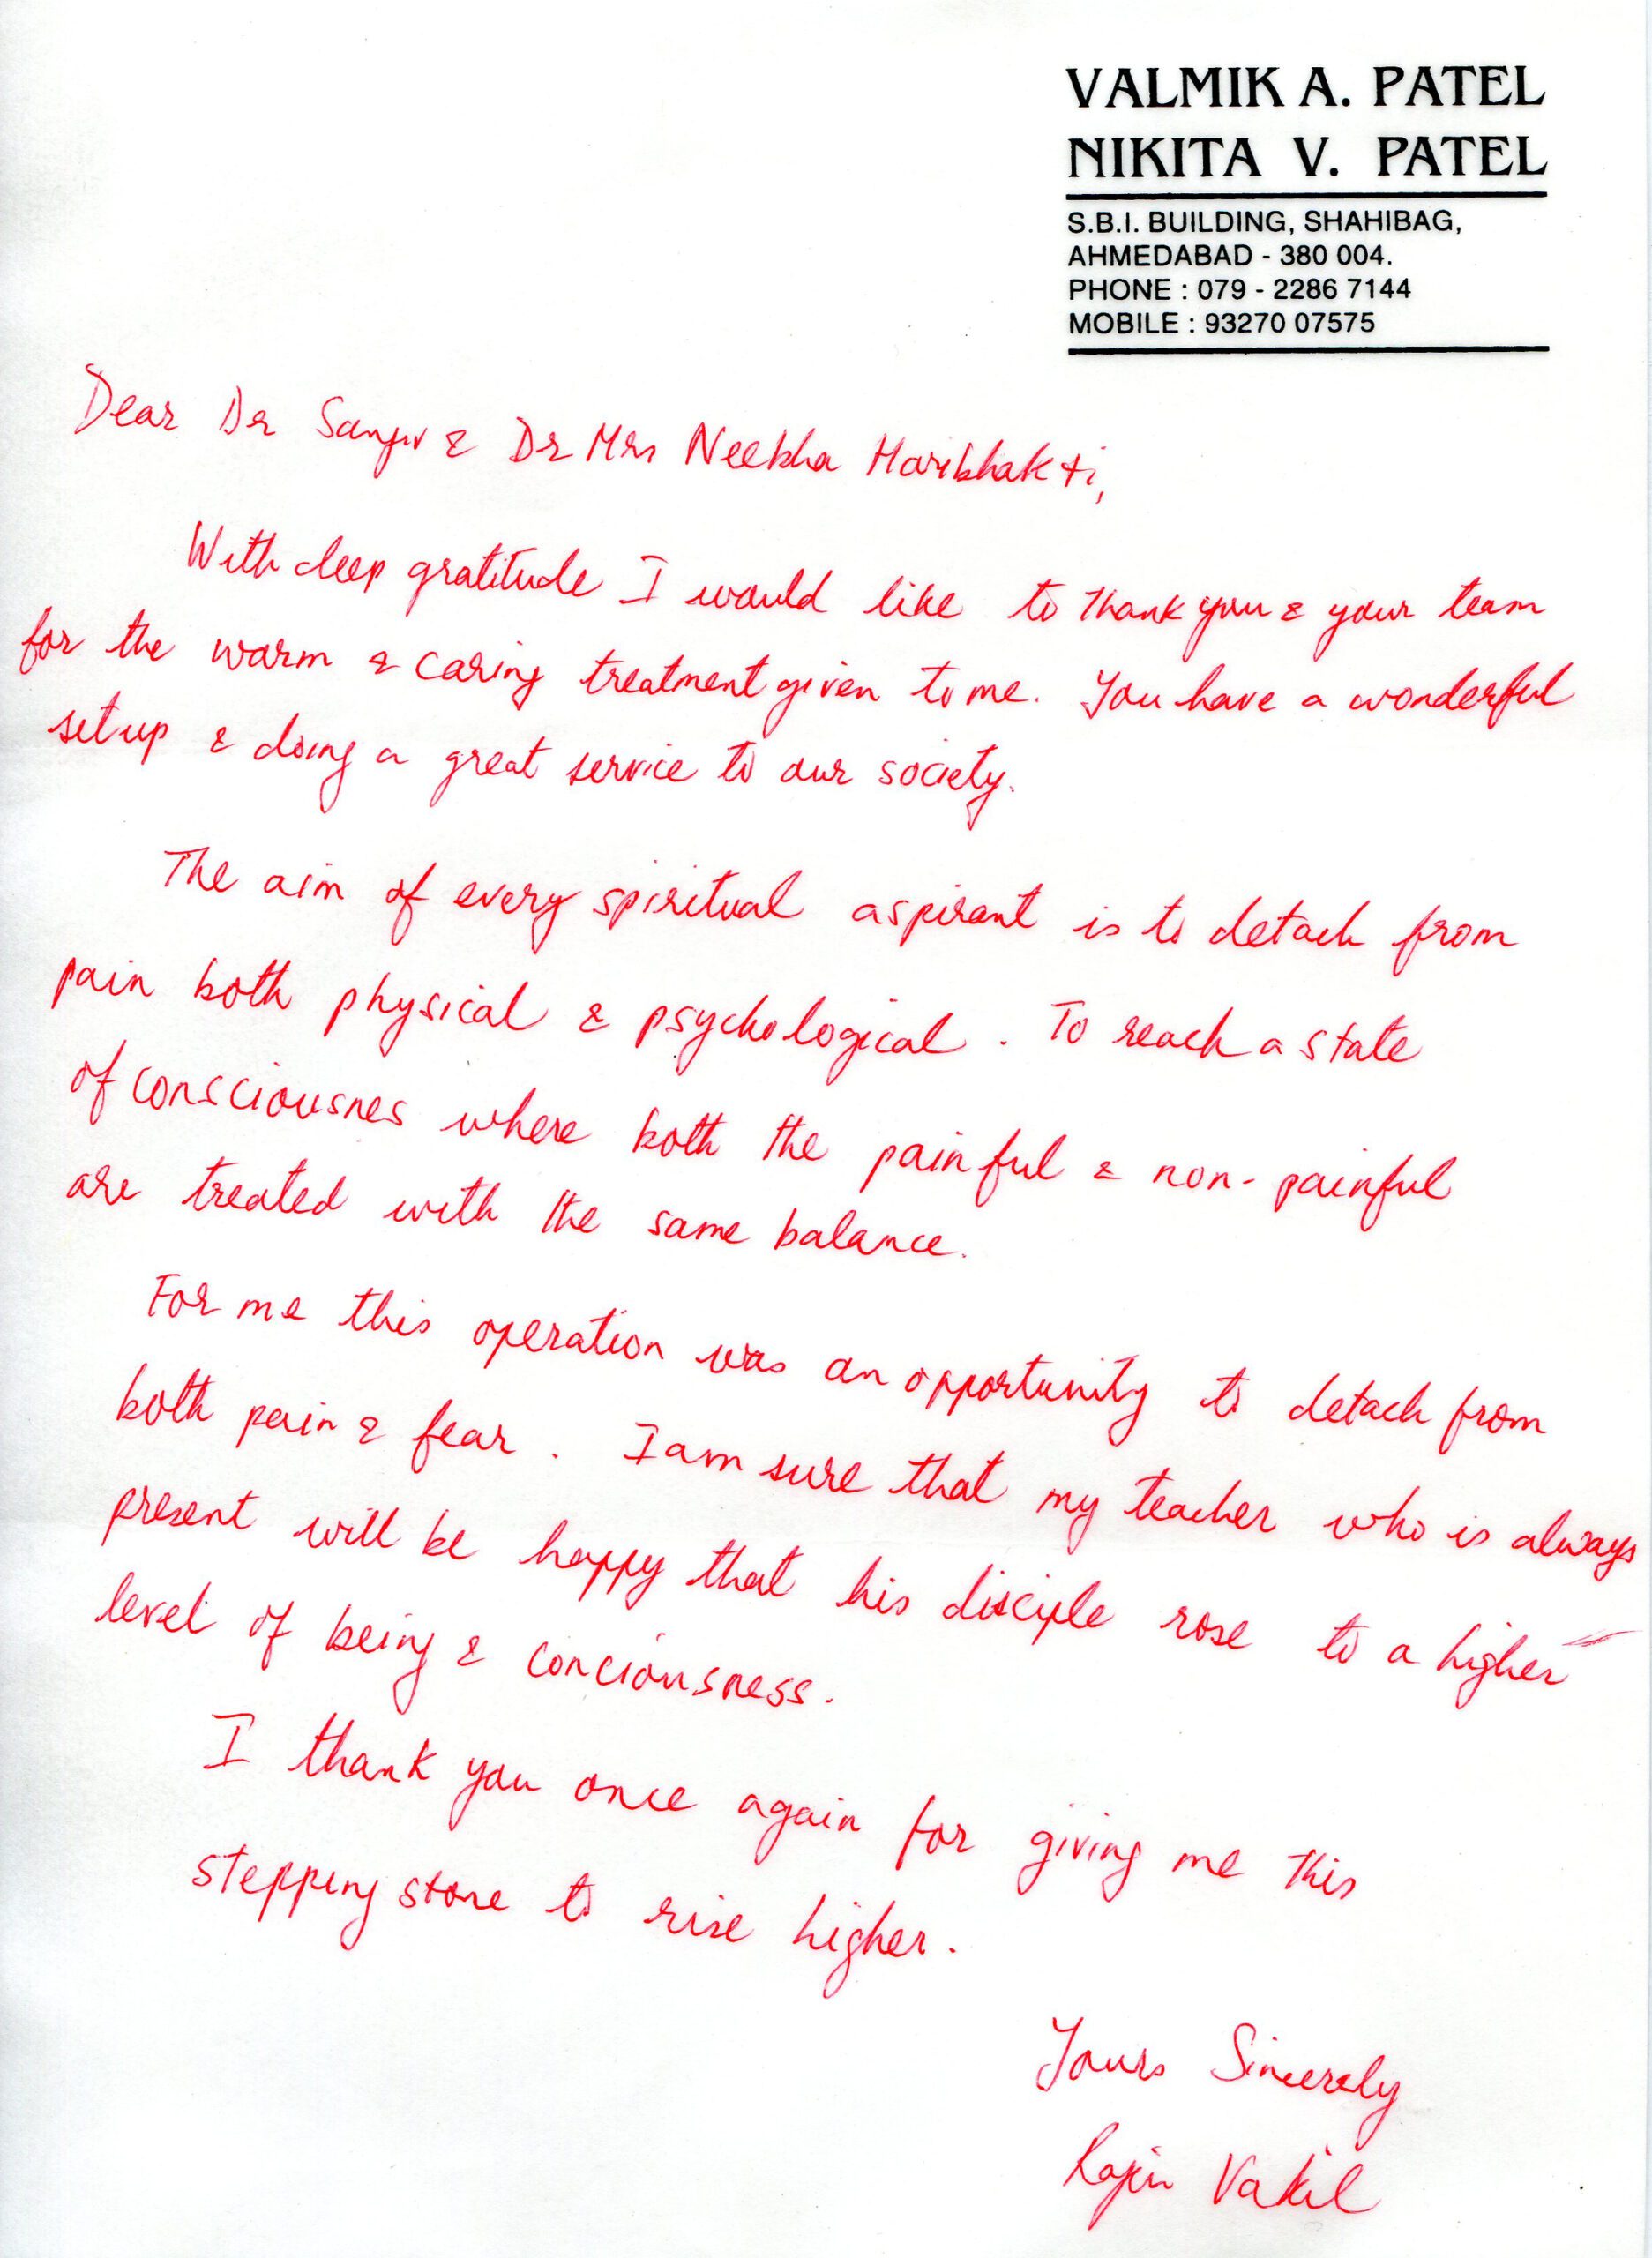 VALMIK A. PATEL
NIKITA V. PATEL
S.B.I. BUILDING, SHAHIBAG,
AHMEDABAD - 380 004.
PHONE : 079 - 2286 7144
MOBILE : 93270 07575
Dear Dr Sanjiv & Dr Mrs Haribhakti,
With deep gratitude I would like to thank you & your team
for the warm & caring treatment given to me. You have a wonderful
setup & doing a great service to our society.
The aim of every spiritual aspirant is to detach from
pain both physical & psychological. To reach a state
of consciousnes where both the painful & non-painful
are treated with the same balance.
For me this operation was an opportunity to detach from
both pain & fear. I am sure that my teacher who is always
present will be happy that his disciple rose to a higher
level of being & conciousness.
I thank you once again for giving me this
stepping stone to rise higher.
Yours Sincerely
Vakil